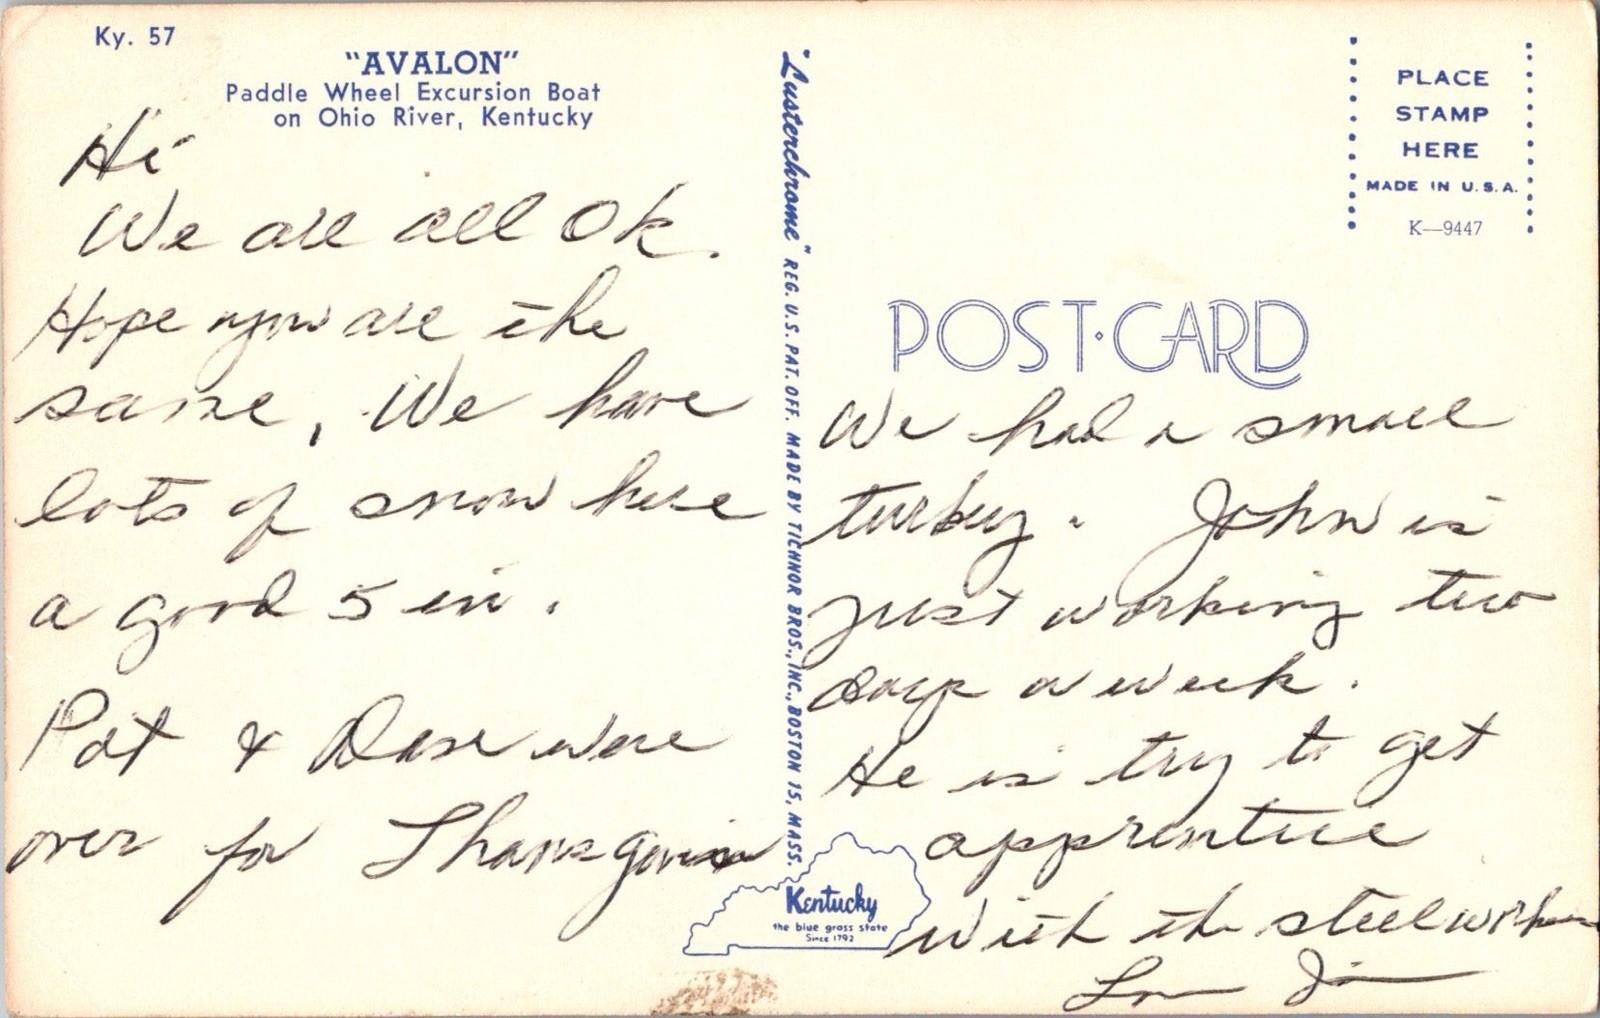 Ky. 57
"AVALON"
Paddle Wheel Excursion Boat
on Ohio River, Kentucky
Hi
We are all Ok.
Hope you are the
same, We have
lots of snow here
a good 5 in.
Pat & Dave were
over for Thansgivin
"Lusterchrome" REG. U.S. PAT. OFF. MADE BY TICHNOR BROS., INC., BOSTON 15, MASS.
Kentucky
the blue grass state
Since 1792
PLACE
STAMP
HERE
MADE IN U.S.A.
K—9447
POST·CARD
We had a small
turkey. John is
just working two
days a week.
He is try to get
apprentice
with the steel
Love